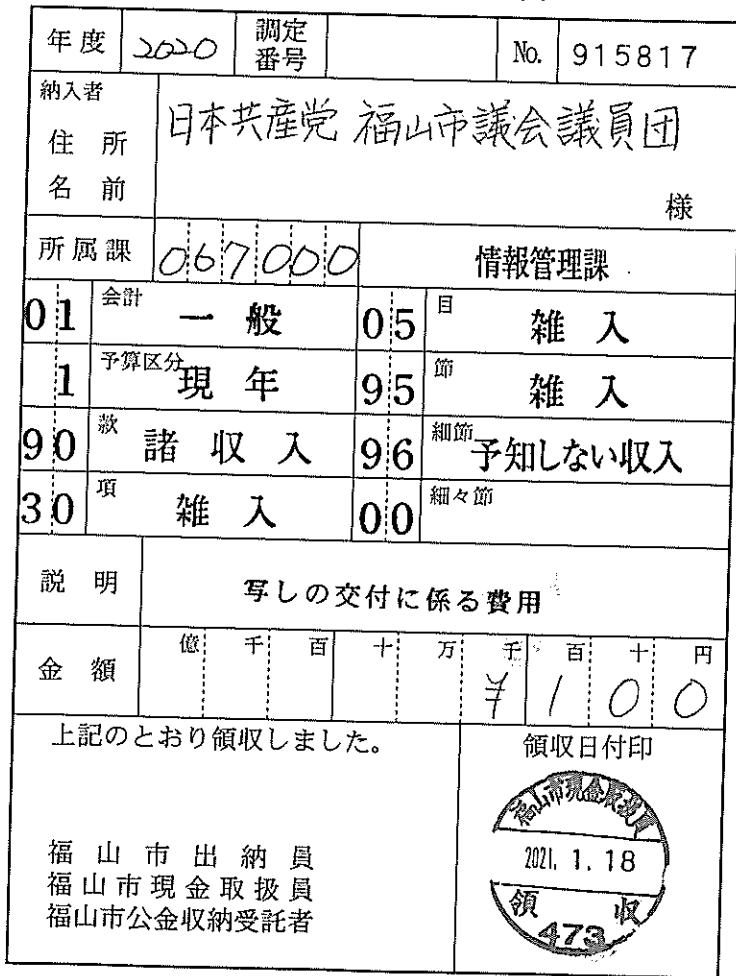 年度 2020 調定番号 No. 915817
納入者
住所
名前
日本共産党 福山市議会議員団
様
所属課 067000 情報管理課
01 会計 一般 05 目 雑入
1 予算区分 現年 95 節 雑入
90 款 諸収入 96 細節 予知しない収入
30 項 雑入 00 細々節
説明 写しの交付に係る費用
金額 億 千 百 十 万 千 百 十 円
¥100
上記のとおり領収しました。
領収日付印
福山市出納員
福山市現金取扱員
福山市公金収納受託者
福山市現金取扱員
2021. 1. 18
領収
473